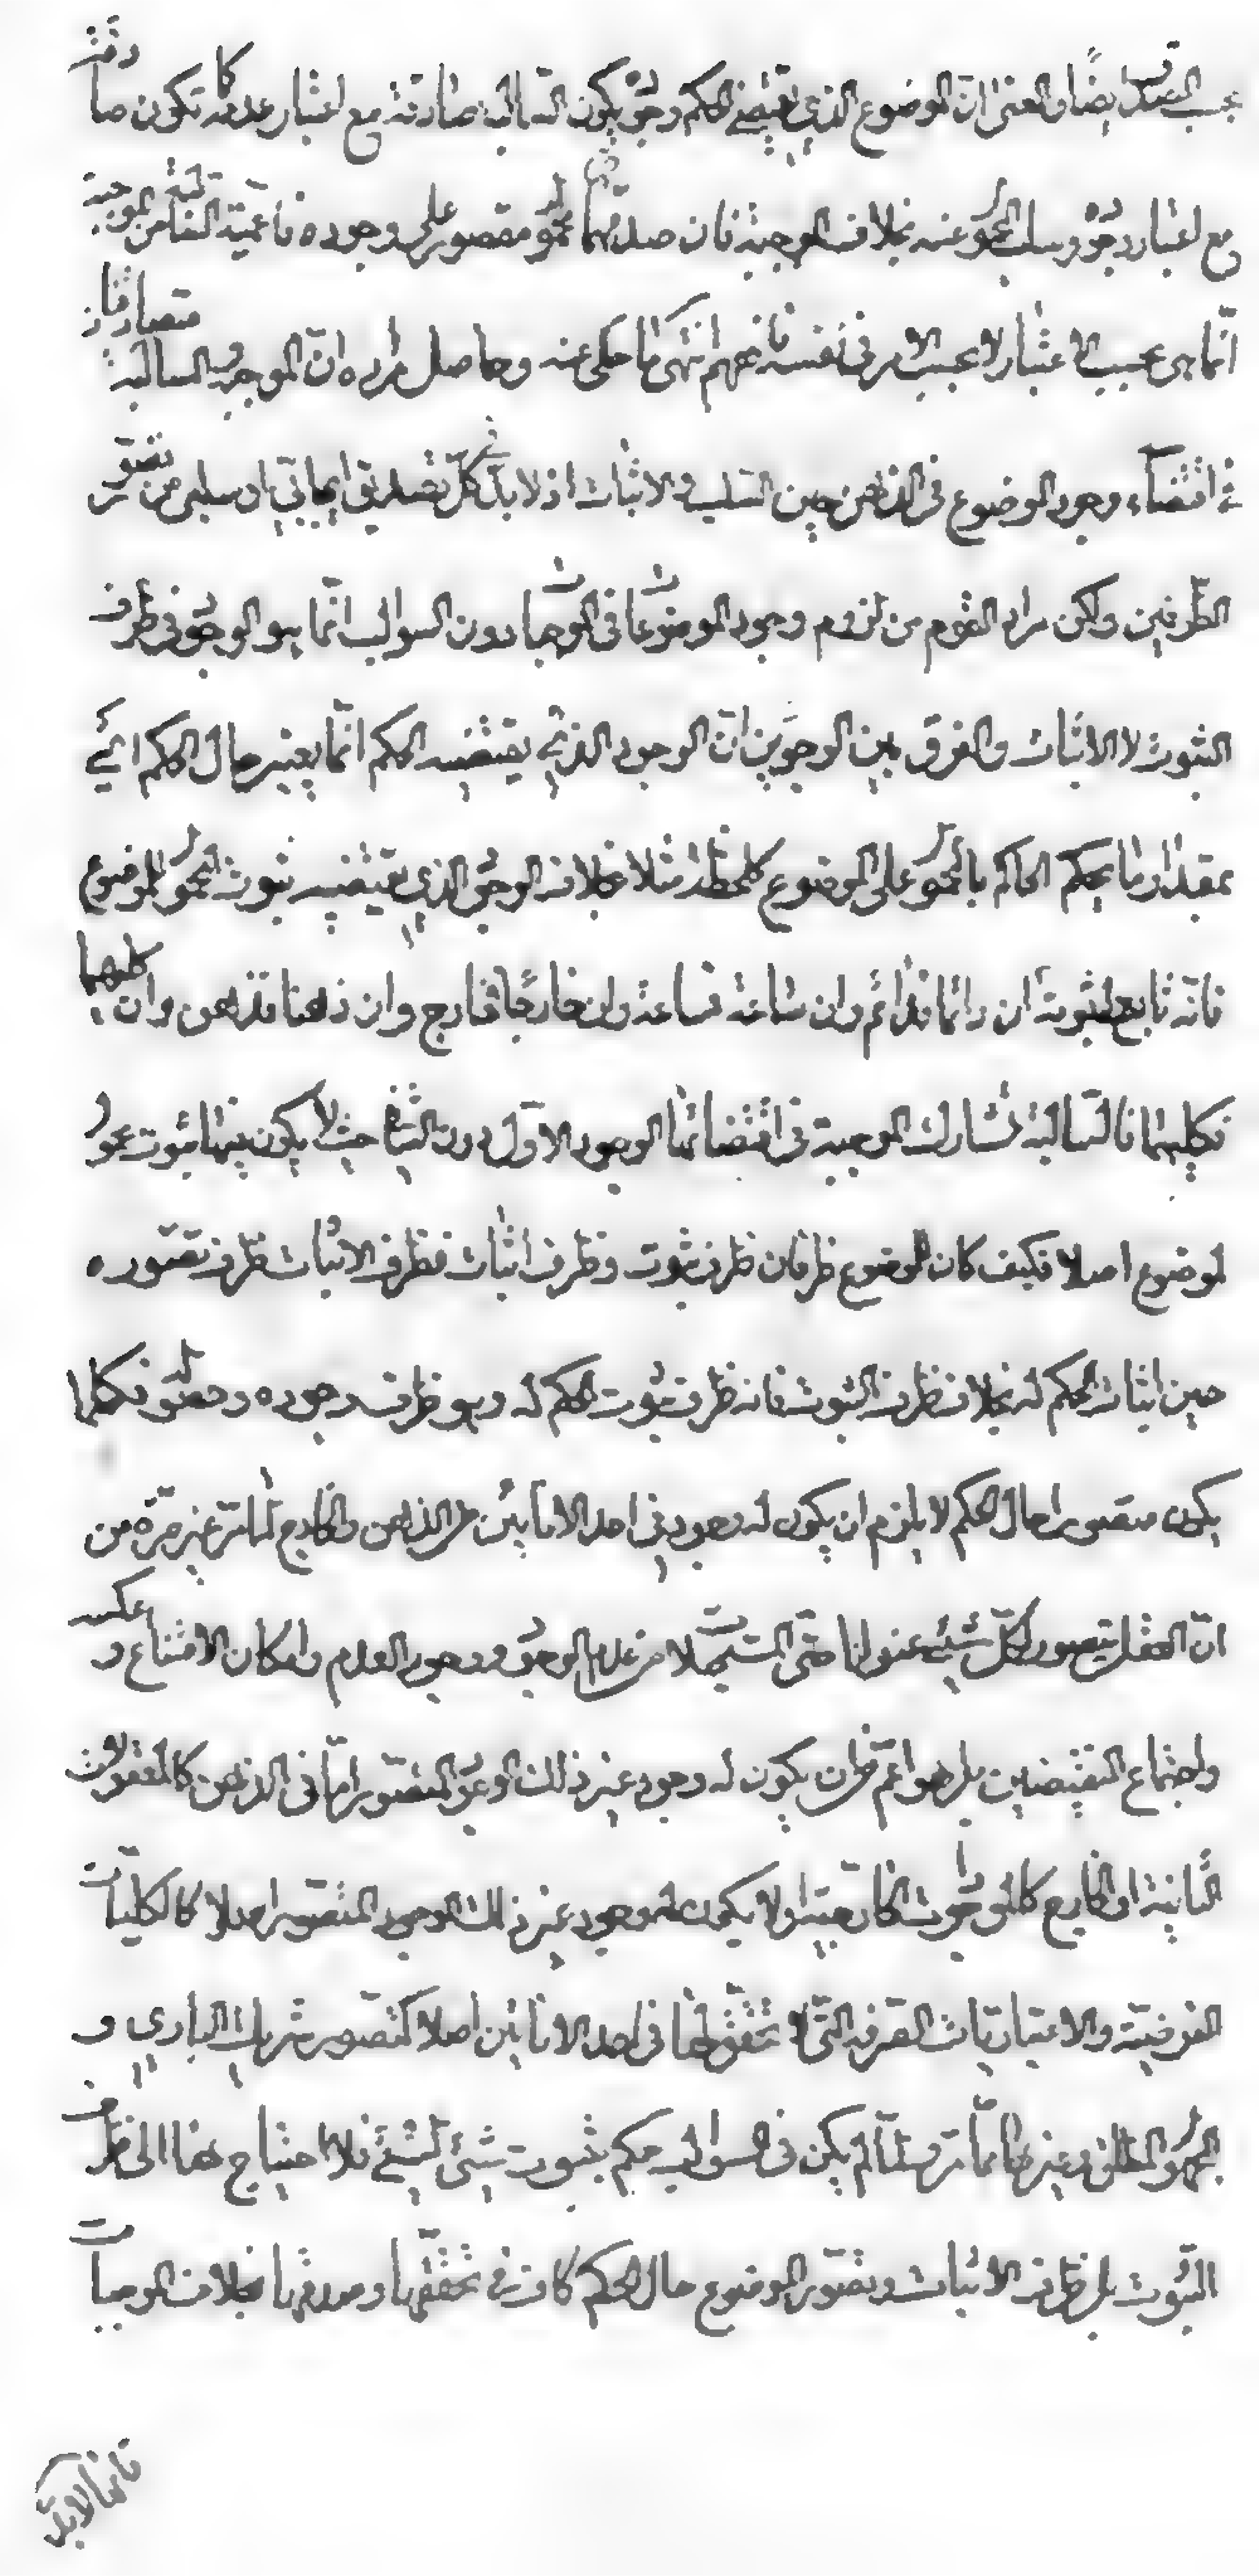 بحسب الصدق ايضا والمعنى ان الموضوع الذي يقتضي الحكم وجوده يكون السالبة صادقة مع اعتبار عدمه كما تكون صادقة
مع اعتبار وجوده وسلب المحمول عنه بخلاف الموجبة فان صدقها محمول مقصور على وجوده فاعمية السالبة من الموجبة
انما هي بحسب الاعتبار لا بحسب الامر في نفسه فافهم انتهى ما حكى عنه وحاصل مراده ان الموجبة والسالبة متصادقتان
في اقتضاء وجود الموضوع في الذهن حين السلب والاثبات اذ لا بد في كل تصديق ايجابي او سلبي من تصور
الطرفين ولكن مراد القوم من لزوم وجود الموضوعات في الموجبات دون السوالب انما هو الوجود في ظرف
الثبوت لا الاثبات والفرق بين الوجودين ان الوجود الذي يقتضيه الحكم انما يعتبر حال الحكم اي
بمقدار ما يحكم الحاكم بالمحمول على الموضوع كلحظة مثلا بخلاف الوجود الذي يقتضيه ثبوت المحمول للموضوع
فانه تابع لثبوته ان دائما فدائم وان ساعة فساعة وان خارجا فخارج وان ذهنا فذهن وان كليهما
فكليهما فالسالبة تشارك الموجبة في اقتضائها الوجود الاول دون الثاني حيث لا يكون فيها ثبوت محمول
لموضوع اصلا فكيف كان للموضوع ظرفان ظرف ثبوت وظرف اثبات فظرف الاثبات ظرف تصوره
حين اثبات الحكم له بخلاف ظرف الثبوت فانه ظرف ثبوت الحكم له وهو ظرف وجوده وحصوله فكلما
يكون متصورا حال الحكم لا يلزم ان يكون له وجود في احد الامرين من الذهن والخارج لما مر غير مرة من
ان العقل يتصور لكل شيء عنوانا حتى المستحيلات من عدم الوجود ووجود العدم وامكان الامتناع وعكسه
واجتماع النقيضين بل هو اعم من ان يكون له وجود غير ذلك الوجود المتصور اما في الذهن كالمعقولات
الثانية او الخارج كالموجودات الخارجية او لا يكون له وجود غير ذلك الوجود المتصور اصلا كالكليات
الفرضية والاعتباريات الصرفة التي لا تحقق لها في احد الامرين اصلا كتصور شريك الباري و
المجهول المطلق وغيرها مما مر ولما لم يكن في السوالب حكم بثبوت شيء لشيء فلا احتياج لها الى ظرف
الثبوت بل ظرف الاثبات وتصور الموضوع حال الحكم كاف في تحققها وصدقها بخلاف الموجبات
فانها لابد